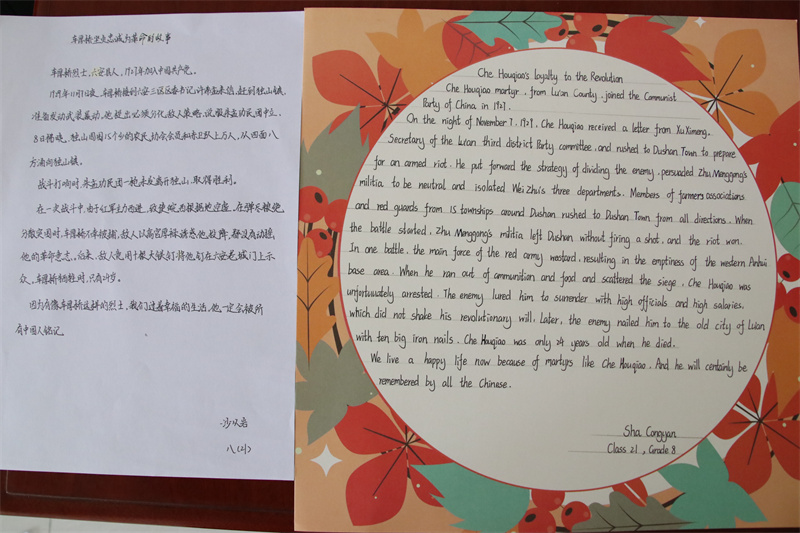 车厚桥坚贞忠诚为革命的故事
车厚桥烈士，六安县人，1927年加入中国共产党。
1929年11月7日夜，车厚桥接到六安三区区委书记许希孟来信，赶到独山镇，
准备发动武装暴动。他提出必须分化敌人策略，说服朱孟功民团中立
8日拂晓，独山周围15个乡的农民协会会员和赤卫队上万人，从四面八
方涌向独山镇。
战斗打响时，朱孟功民团一枪未发离开独山，取得胜利。
在一次战斗中，由于红军主力西进，致使皖西根据地空虚，在弹尽粮绝
分散突围时，车厚桥不幸被捕，敌人以高官厚禄诱惑他，投降，都没有动摇
他的革命意志。后来，敌人竟用十根大铁钉将他钉在六安老城门上示
众，车厚桥牺牲时，只有24岁。
因为有像车厚桥这样的烈士，我们过着幸福的生活，他一定会被所
有中国人铭记。
沙从岩
八(21)
Che Houqiao's loyalty to the Revolution
Che Houqiao martyr, from Lu'an County, joined the Communist
Party of China in 1927.
On the night of November 7, 1929, Che Houqiao received a letter from Xu Ximeng,
Secretary of the Lu'an third district Party committee, and rushed to Dushan Town to prepare
for an armed riot. He put forward the strategy of dividing the enemy, persuaded Zhu Menggong's
militia to be neutral and isolated Wei Zhui's three departments. Members of farmers associations
and red guards from 15 townships around Dushan rushed to Dushan Town from all directions. When
the battle started, Zhu Menggong's militia left Dushan without firing a shot, and the riot won.
In one battle, the main force of the red army westward, resulting in the emptiness of the western Anhui
base area. When he ran out of ammunition and food and scattered the siege, Che Houqiao was
unfortunately arrested. The enemy lured him to surrender with high officials and high salaries,
which did not shake his revolutionary will. Later, the enemy nailed him to the old city of Lu'an
with ten big iron nails. Che Houqiao was only 24 years old when he died.
We live a happy life now because of martyrs like Che Houqiao. And he will certainly be
remembered by all the Chinese.
Sha Congyan
Class 21, Grade 8